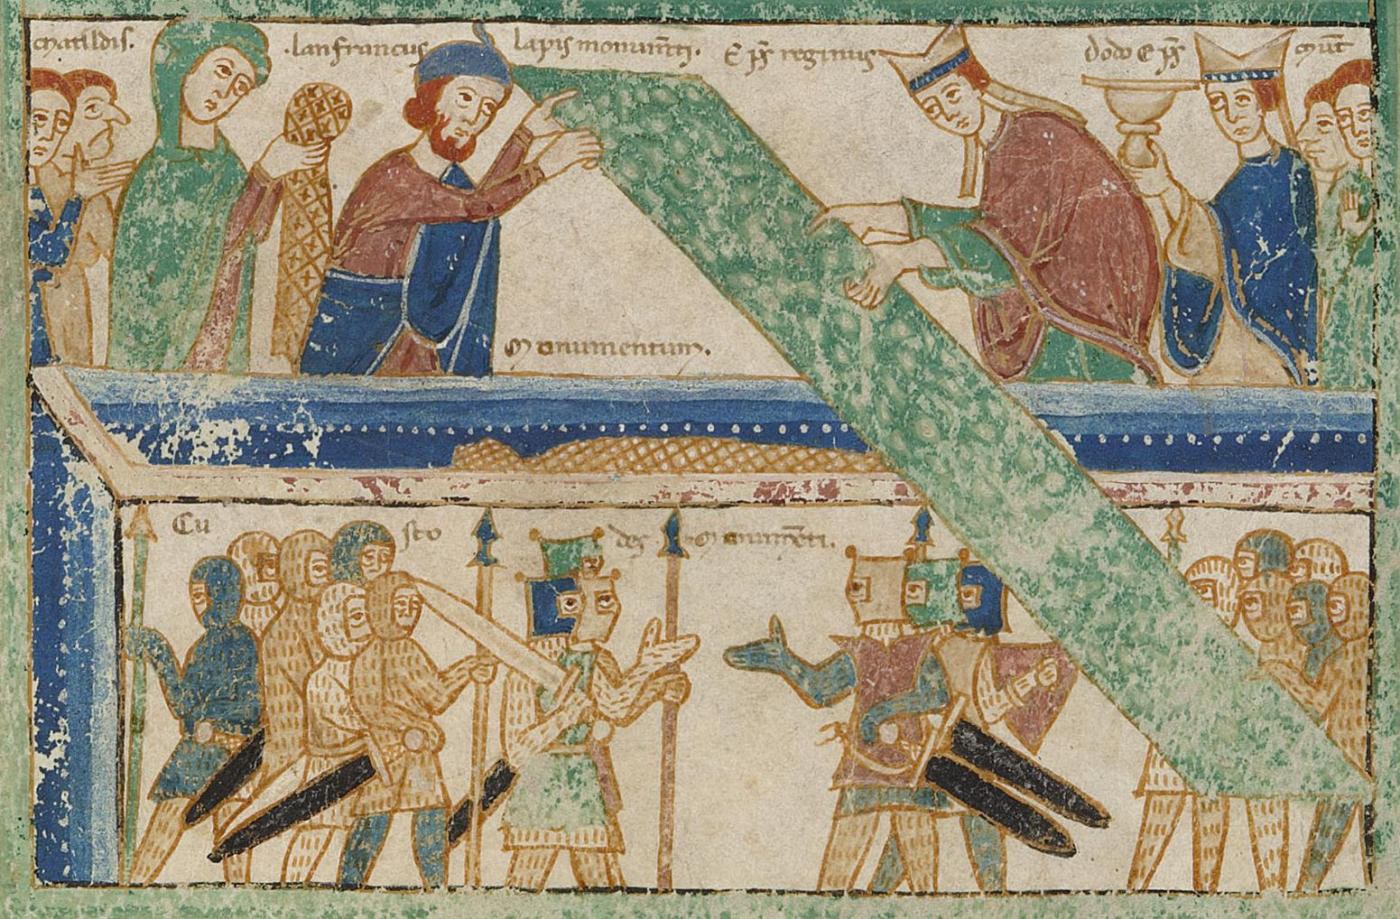 matildis. .lanfrancus lapis monum̅ti. E p̅s reginus dodo E p̅s
Monumentum.
Cu sto des Monum̅eti.